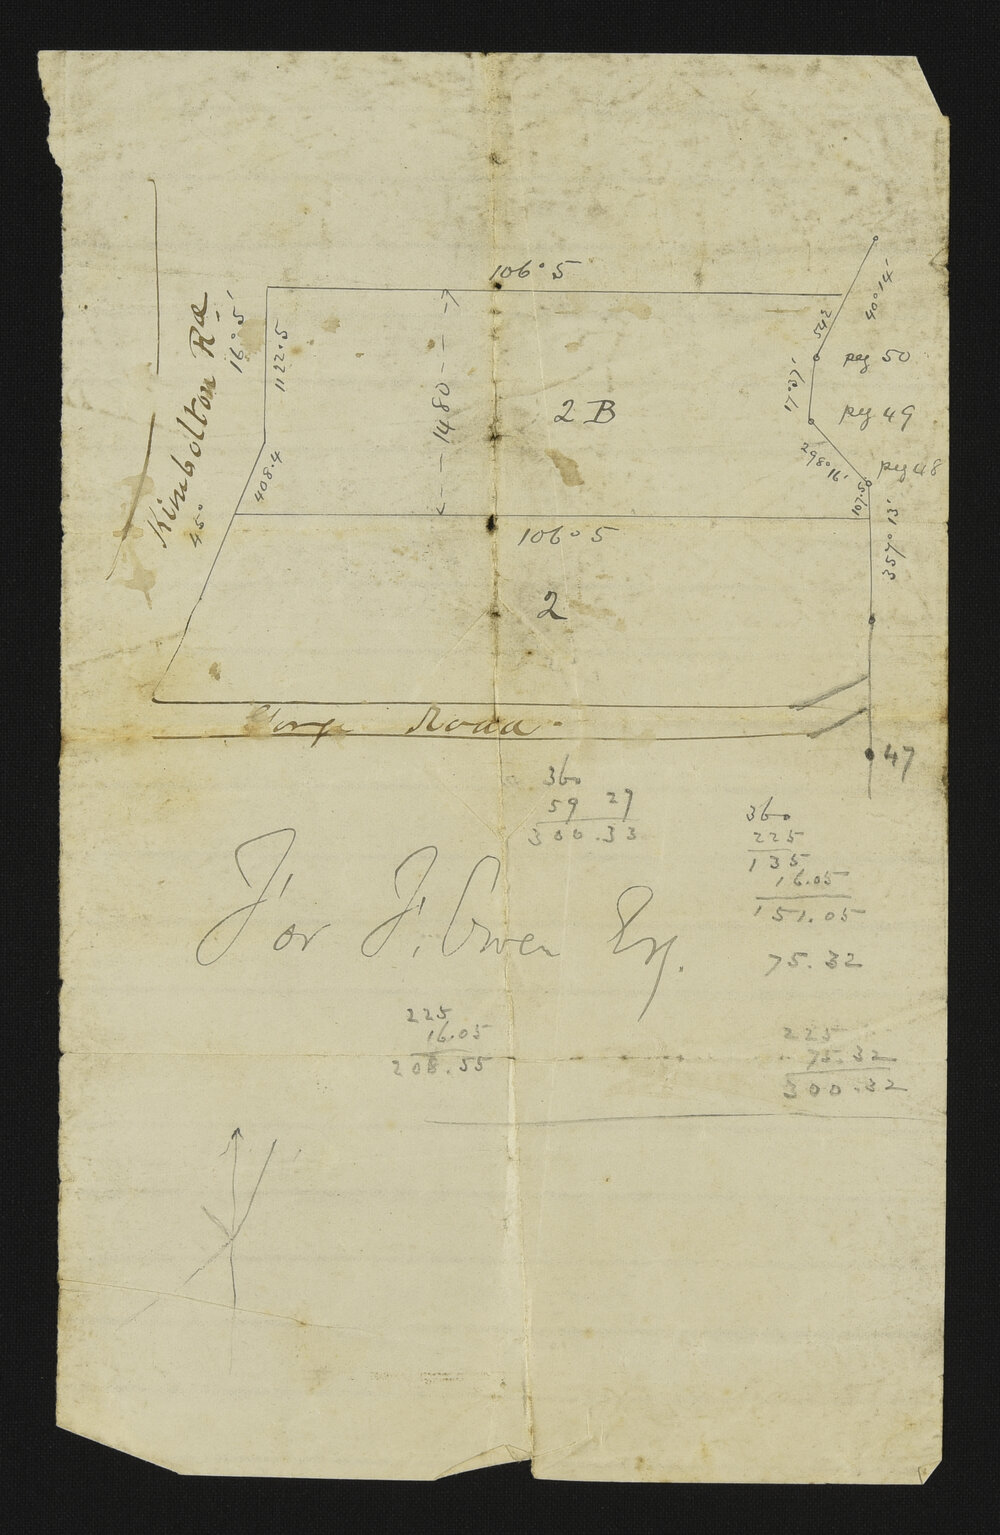 106° 5
40° 14'
542
Kimbolton Rd
16° 5'
1122.5
1480
2 B
17° 07'
peg 50
peg 49
298° 16'
peg 48
408.4
45°
107.50
357° 13'
106° 5
2
Gorge Road
47
360
59 27
300.33
360
225
135
16.05
151.05
75.32
For J. Owen Esq.
225
16.05
208.55
225
75.32
300.32